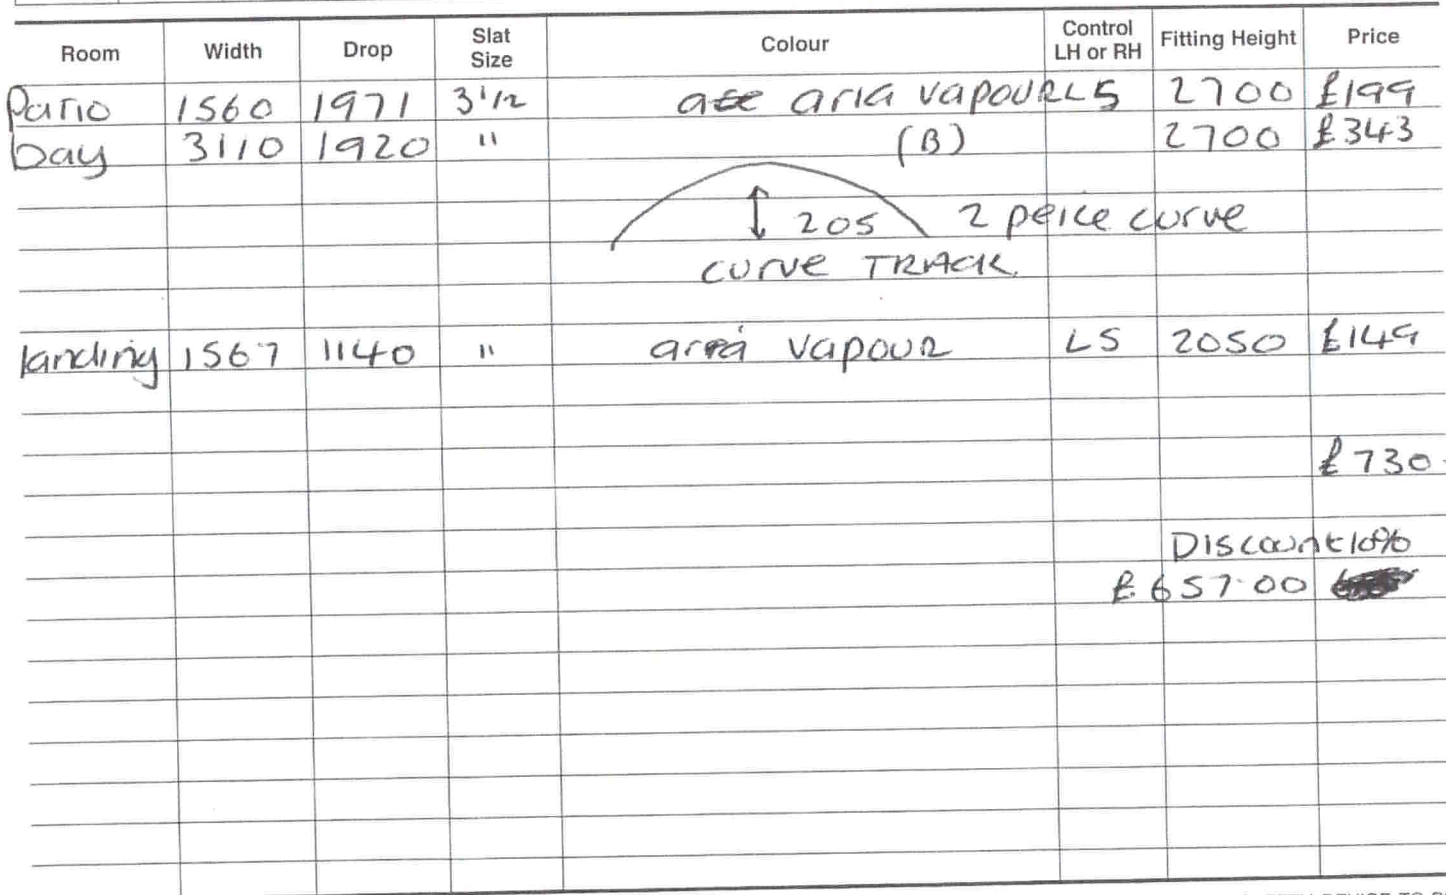 Room Width Drop Slat Size Colour Control LH or RH Fitting Height Price
Patio 1560 1971 3 1/2 aria vapour LS 2700 £199
bay 3110 1920 " (B) 2700 £343
205 2 peice curve
curve TRACK
landing 1567 1140 " aria vapour LS 2050 £149
£730.
Discount 10%
£657.00